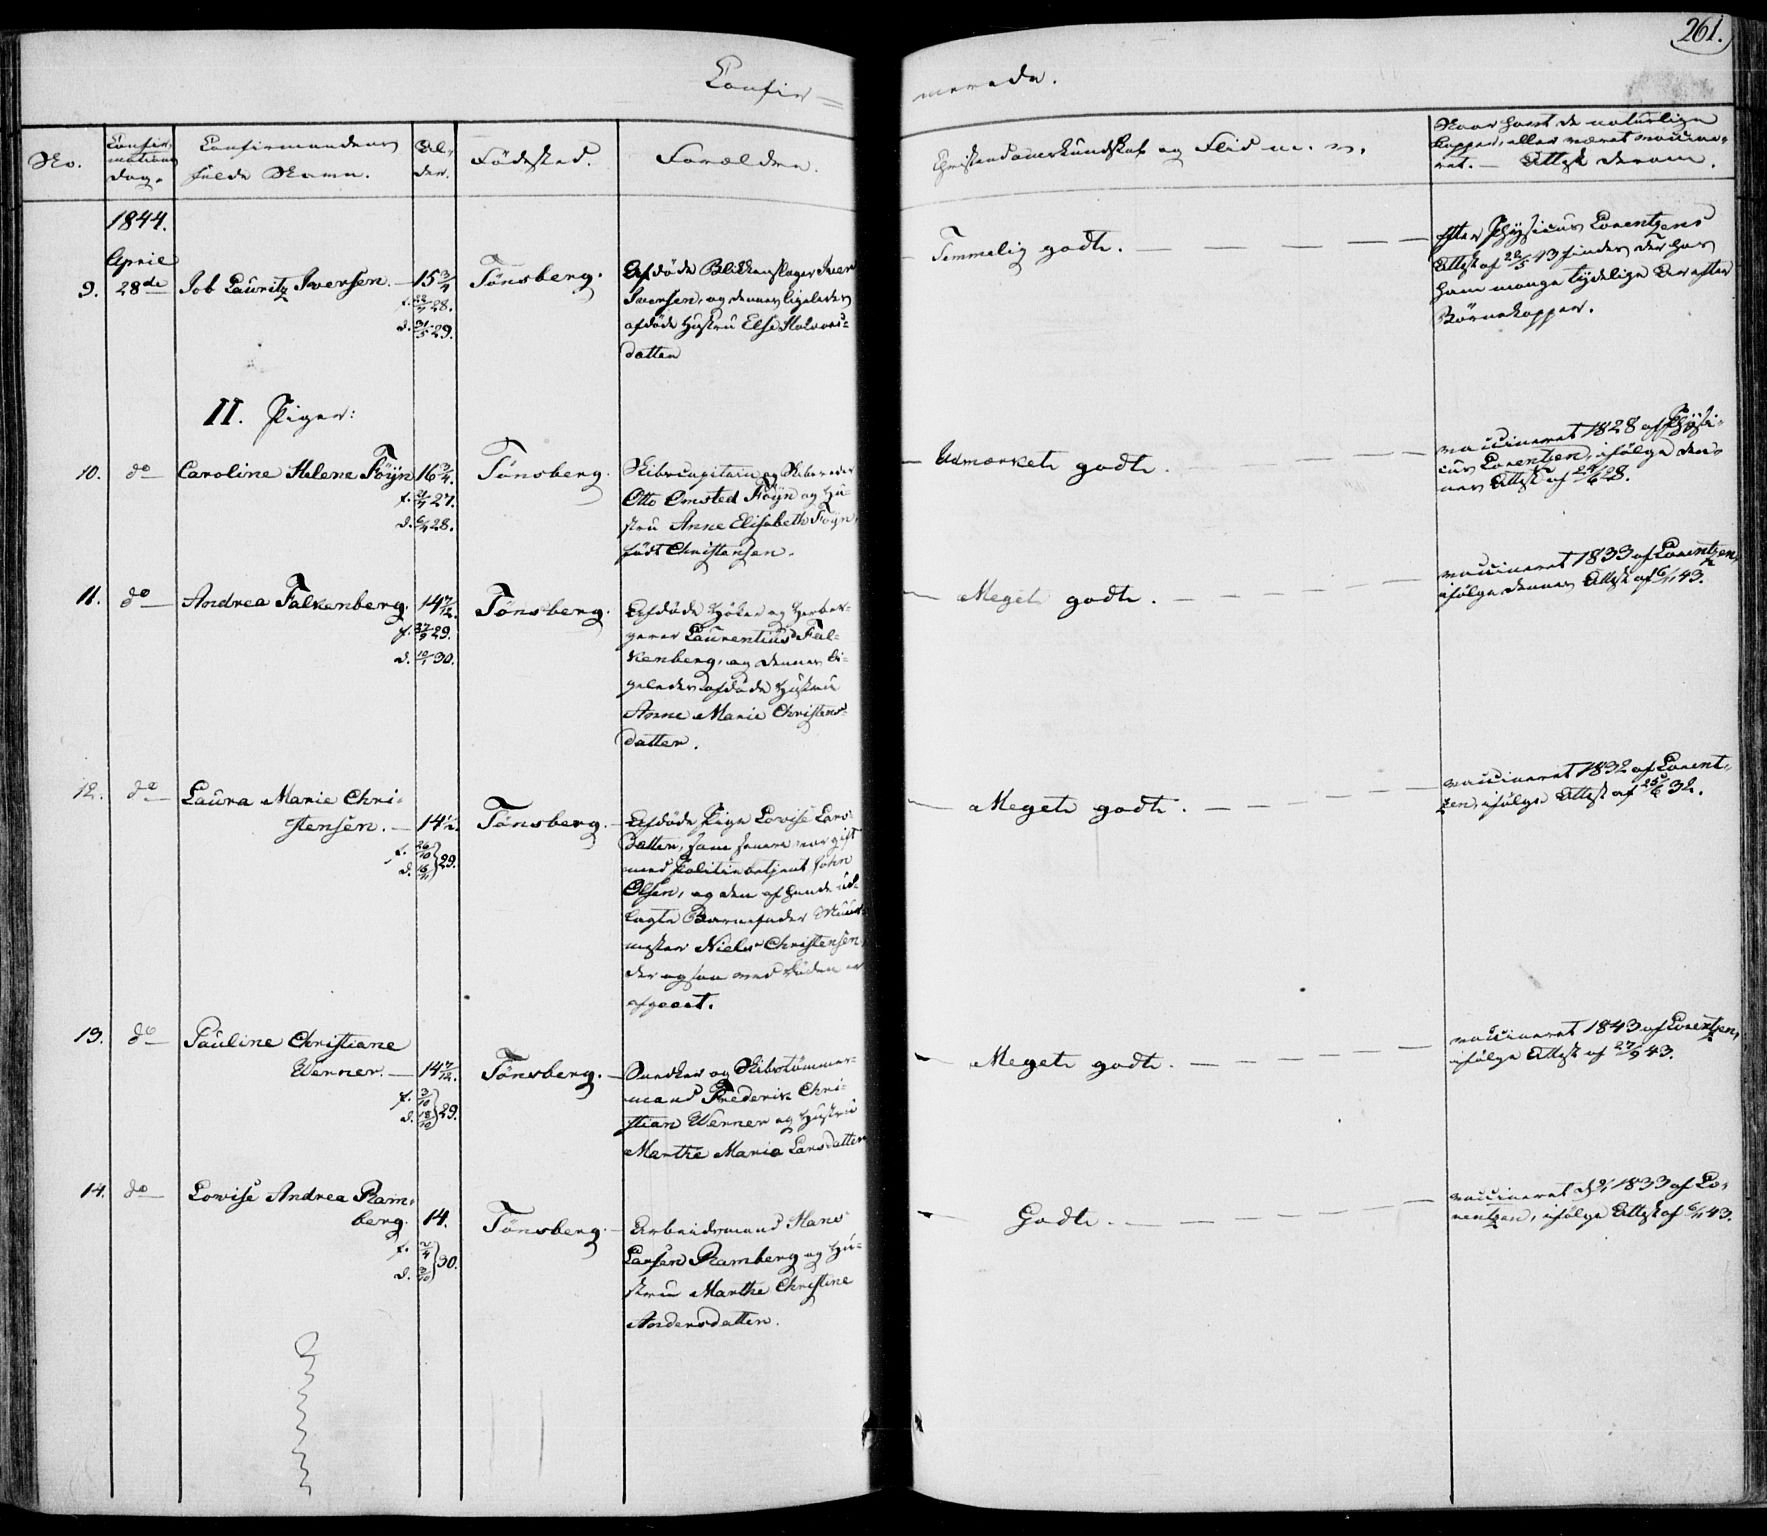 261.
Confir=
merede.
No.
Confir-
mations
dag.
Confirmandens
fulde Navn.
Al-
der.
Fødested.
Forældre.
Christendomskundskab og Flid m. v.
Naar havt de naturlige
Kopper, eller været vaccine-
ret. — Attest derom.
1844.
April
9. 28de Job Lauritz Iversen. — 15 3/4
f. 28.
d. 31/5 29.
Tønsberg.
Afdøde Blikkenslager Iver
Iversen, og dennes ligeledes
afdøde Hustru Else Halvors-
datter
Temmelig godt. —
Efter Physicus Lorentzens
Attest af 22/5 43 findes der hos
ham mange tydelige Ar efter
Børnekopper.
II. Piger:
10. do Caroline Helene Föyn 16 3/4.
f. 27.
d. 28.
Tønsberg.
Skibscapitain og Skibsreder
Otto Omsted Föyn og Hu-
stru Anne Elisabeth Föyn,
født Christensen.
— Udmærket godt. —
vaccineret 1828 af Physi-
cus Lorentzen, ifølge den-
nes Attest af 28.
11. do Andrea Falkenberg. 14 7/12.
f. 27/9 29.
d. 10/1 30.
Tønsberg.
Afdøde Høker og Herber-
gerer Laurentius Fal-
kenberg, og dennes li-
geledes afdøde Hustru
Anne Marie Christens-
datter.
— Meget godt. —
vaccineret 1833 af Lorentzen,
ifølge dennes Attest af 6/11 43.
12. do Laura Marie Chri-
stensen. — 14 1/2.
f. 26/10
d. 16/11 } 29.
Tønsberg. —
Afdøde Pige Lovise Lars-
datter, som senere var gift
med Politiebetjent John
Olsen, og den af hende ud-
lagte Barnefader Muur-
mester Niels Christensen,
der ogsaa ved Døden er
afgaaet.
— Meget godt. —
vaccineret 1832 af Lorent-
zen, ifølge Attest af 25/6 32.
13. do Pauline Christiane
Werner. — 14 7/12.
f. 3/10
d. 18/10 } 29.
Tønsberg. —
Snedker og Skibstømmer-
mand Frederik Chri-
stian Werner og Hustru
Marthe Maria Larsdatter
— Meget godt. —
vaccineret 1843 af Lorentzen,
ifølge Attest af 27/9 43.
14. do Lovise Andrea Ram-
berg. 14.
f. 2/4
d. 3/10 } 30.
Tønsberg. —
Arbeidsmand Hans
Larsen Ramberg og Hu-
stru Marthe Christine
Andersdatter.
— Godt. —
vaccineret 1833 af Lo-
rentzen, ifølge Attest af 6/11 43.